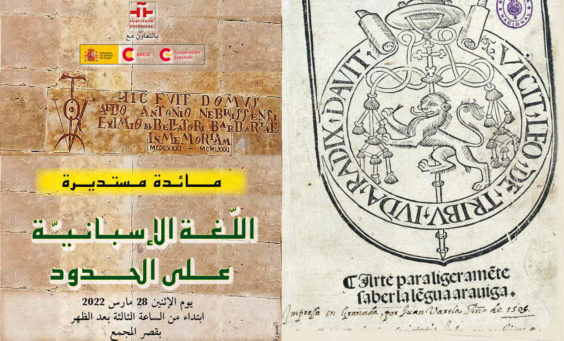 INSTITUTO
CERVANTES
بالتعاون مع
aecid
Cooperación
Española
HIC FVIT DOMVS
AELIO ANTONIO NEBRISSENSI
EXIMIO DEBELLATORI BARBARIAE
IN MEMORIAM
MCDLXXXI - MCMLXXXI
مائدة مستديرة
اللّغة الإسبانيّة
على الحدود
يوم الإثنين 28 مارس 2022
ابتداء من الساعة الثالثة بعد الظهر
بقصر المجمع
VICIT·LEO·DE·TRIBV·IVDA·RADIX·DAVIT·
Arte para ligeramẽte
saber la lẽgua arauiga.
Impresa en Granada, por Juan Varela